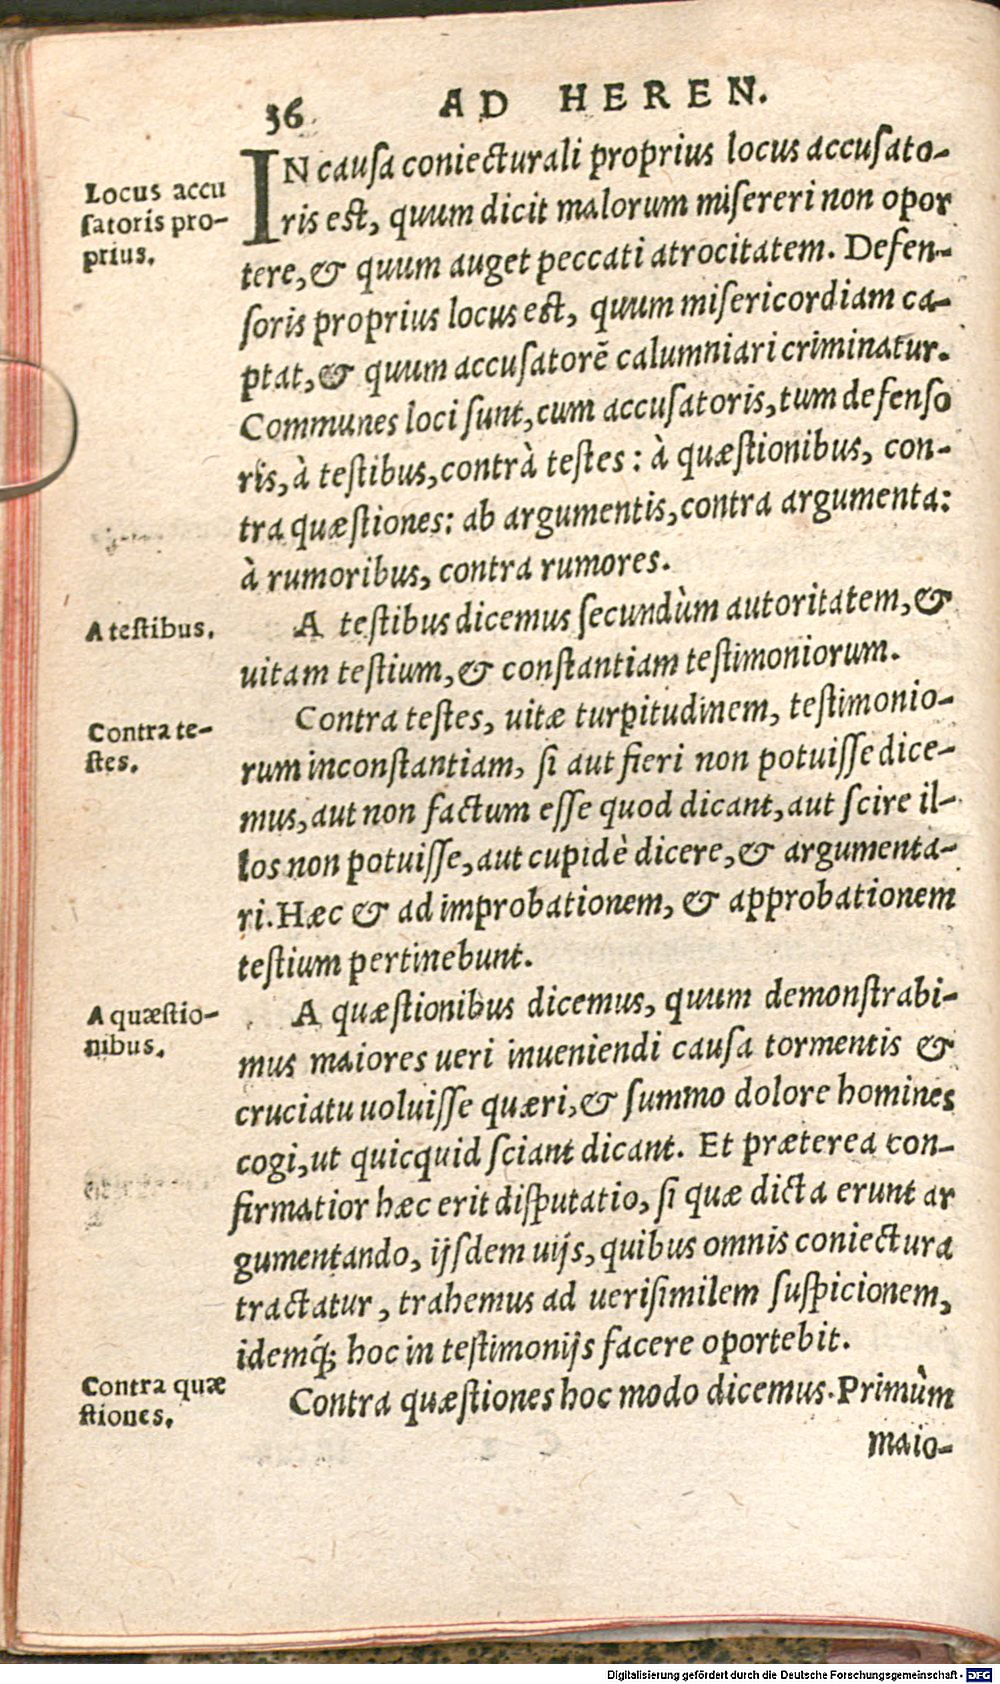 36 AD HEREN.
Locus accu
satoris pro-
prius.
IN causa coniecturali proprius locus accusato-
ris est, quum dicit malorum misereri non opor
tere, & quum auget peccati atrocitatem. Defen-
soris proprius locus est, quum misericordiam ca-
ptat, & quum accusatorē calumniari criminatur.
Communes loci sunt, cum accusatoris, tum defenso
ris, à testibus, contrà testes: à quæstionibus, con-
tra quæstiones: ab argumentis, contra argumenta:
à rumoribus, contra rumores.
A testibus.
A testibus dicemus secundùm autoritatem, &
uitam testium, & constantiam testimoniorum.
Contra te-
stes.
Contra testes, uitæ turpitudinem, testimonio-
rum inconstantiam, si aut fieri non potuisse dice-
mus, aut non factum esse quod dicant, aut scire il-
los non potuisse, aut cupidè dicere, & argumenta-
ri. Hæc & ad improbationem, & approbationem
testium pertinebunt.
A quæstio-
nibus.
A quæstionibus dicemus, quum demonstrabi-
mus maiores ueri inueniendi causa tormentis &
cruciatu uoluisse quæri, & summo dolore homines
cogi, ut quicquid sciant dicant. Et præterea con-
firmatior hæc erit disputatio, si quæ dicta erunt ar
gumentando, ijsdem uijs, quibus omnis coniectura
tractatur, trahemus ad uerisimilem suspicionem,
idemq́; hoc in testimonijs facere oportebit.
Contra quæ
stiones.
Contra quæstiones hoc modo dicemus. Primùm
maio-
Digitalisierung gefördert durch die Deutsche Forschungsgemeinschaft - DFG